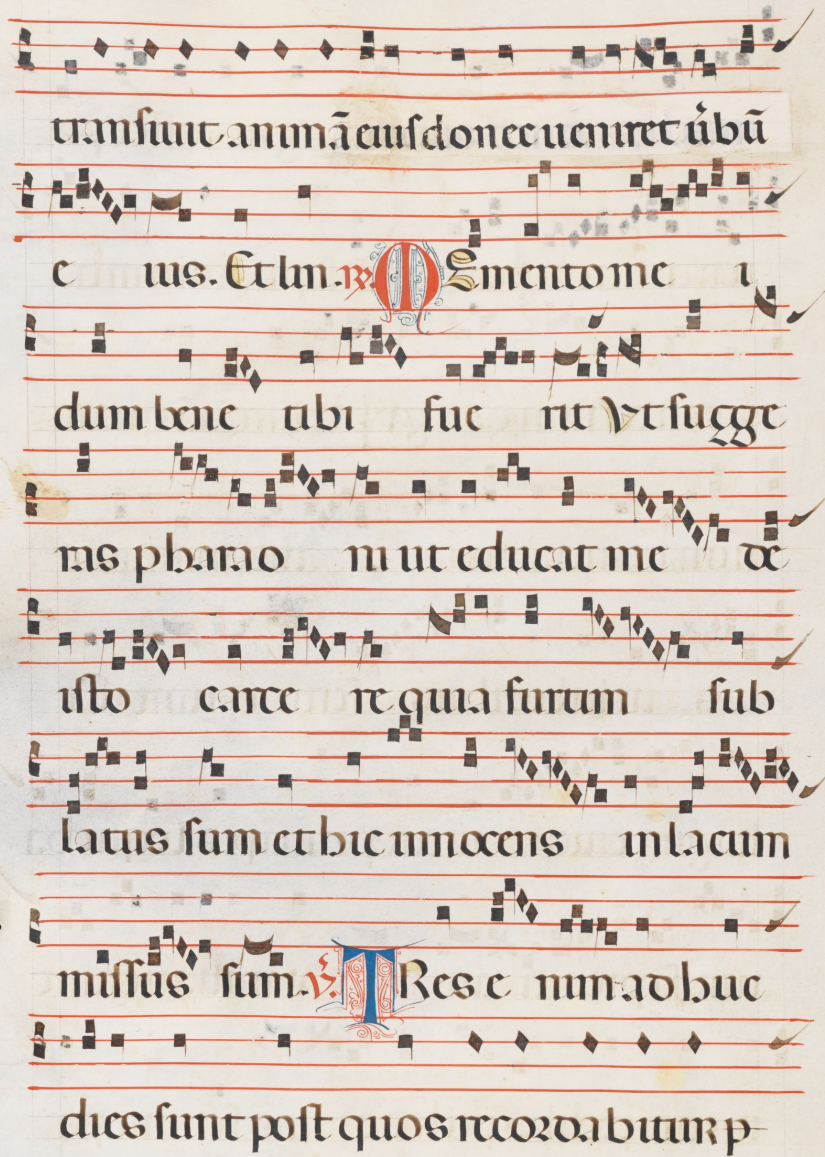 transiuit animā eius donec ueniret u̇̃bū
e ius. Et lin. ℟. MEmento me i
dum bene tibi fue rit Vt sugge
ras pharao ni ut educat me de
isto carce re quia furtim sub
latus sum et hic innocens in lacum
missus sum. ℣. TRes e nim adhuc
dies sunt post quos recordabitur p